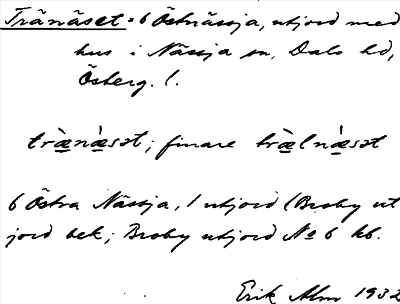 Tränäset = 6 Östnässja, utjord med
hus i Nässja sn, Dals hd,
Österg. l.
træ̀næ̀sət; finare træ̀lnæ̀sət
6 Östra Nässja, 1 utjord (Broby ut
jord bek; Broby utjord № 6 kb.
Erik Alm 1932